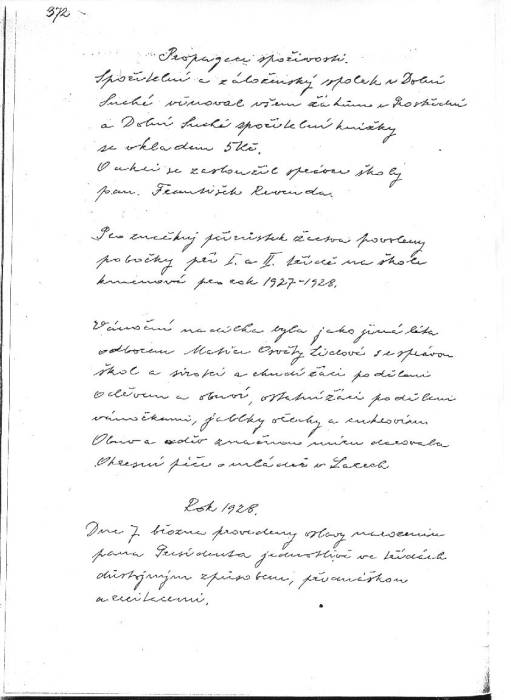 372
Propagace spořivosti.
Spořitelní a záloženský spolek v Dolní
Suché věnoval všem žákům v Prostřední
a Dolní Suché spořitelní knížky
se vkladem 5 Kč.
O akci se zasloužil správce školy
pan. František Revenda.
Pro značný přírůstek žactva povoleny
pobočky při I. a II. třídě na škole
kmenové pro rok 1927-1928.
Vánoční nadílka byla jako jiná léta
odborem Matice Osvěty Lidové s správou
škol a sirotci a chudí žáci poděleni
oděvem a obuví, ostatní žáci poděleni
vánočkami, jablky ořechy a cukrovím
Obuv a oděv značnou měrou darovala
Okresní péče o mládež v Lazech
Rok 1928.
Dne 7. března provedeny oslavy narozenin
pana Presidenta jednotlivě ve třídách
důstojným způsobem, přednáškou
a recitacemi.